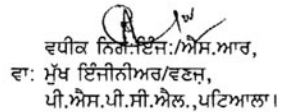 ਵਧੀਕ ਨਿਗ:ਇੰਜ:/ਐਸ.ਆਰ,
ਵਾ: ਮੁੱਖ ਇੰਜੀਨੀਅਰ/ਵਣਜ,
ਪੀ.ਐਸ.ਪੀ.ਸੀ.ਐਲ.,ਪਟਿਆਲਾ।